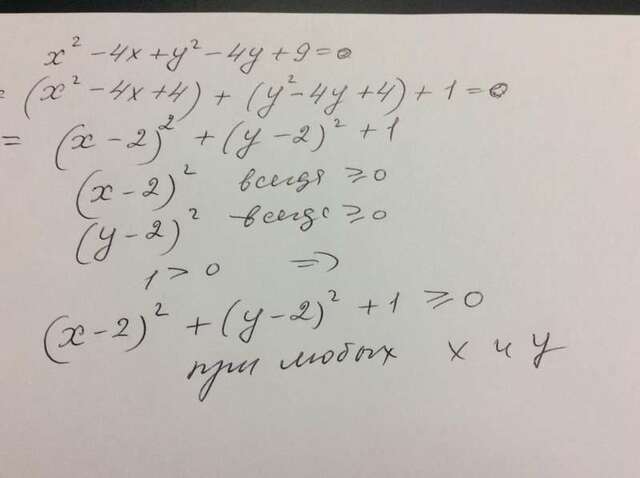 x² - 4x + y² - 4y + 9 = 0
= (x² - 4x + 4) + (y² - 4y + 4) + 1 = 0
= (x - 2)² + (y - 2)² + 1
(x - 2)² всегда ≥ 0
(y - 2)² - всегда ≥ 0
1 > 0 ⇒
(x - 2)² + (y - 2)² + 1 ≥ 0
при любых x и y